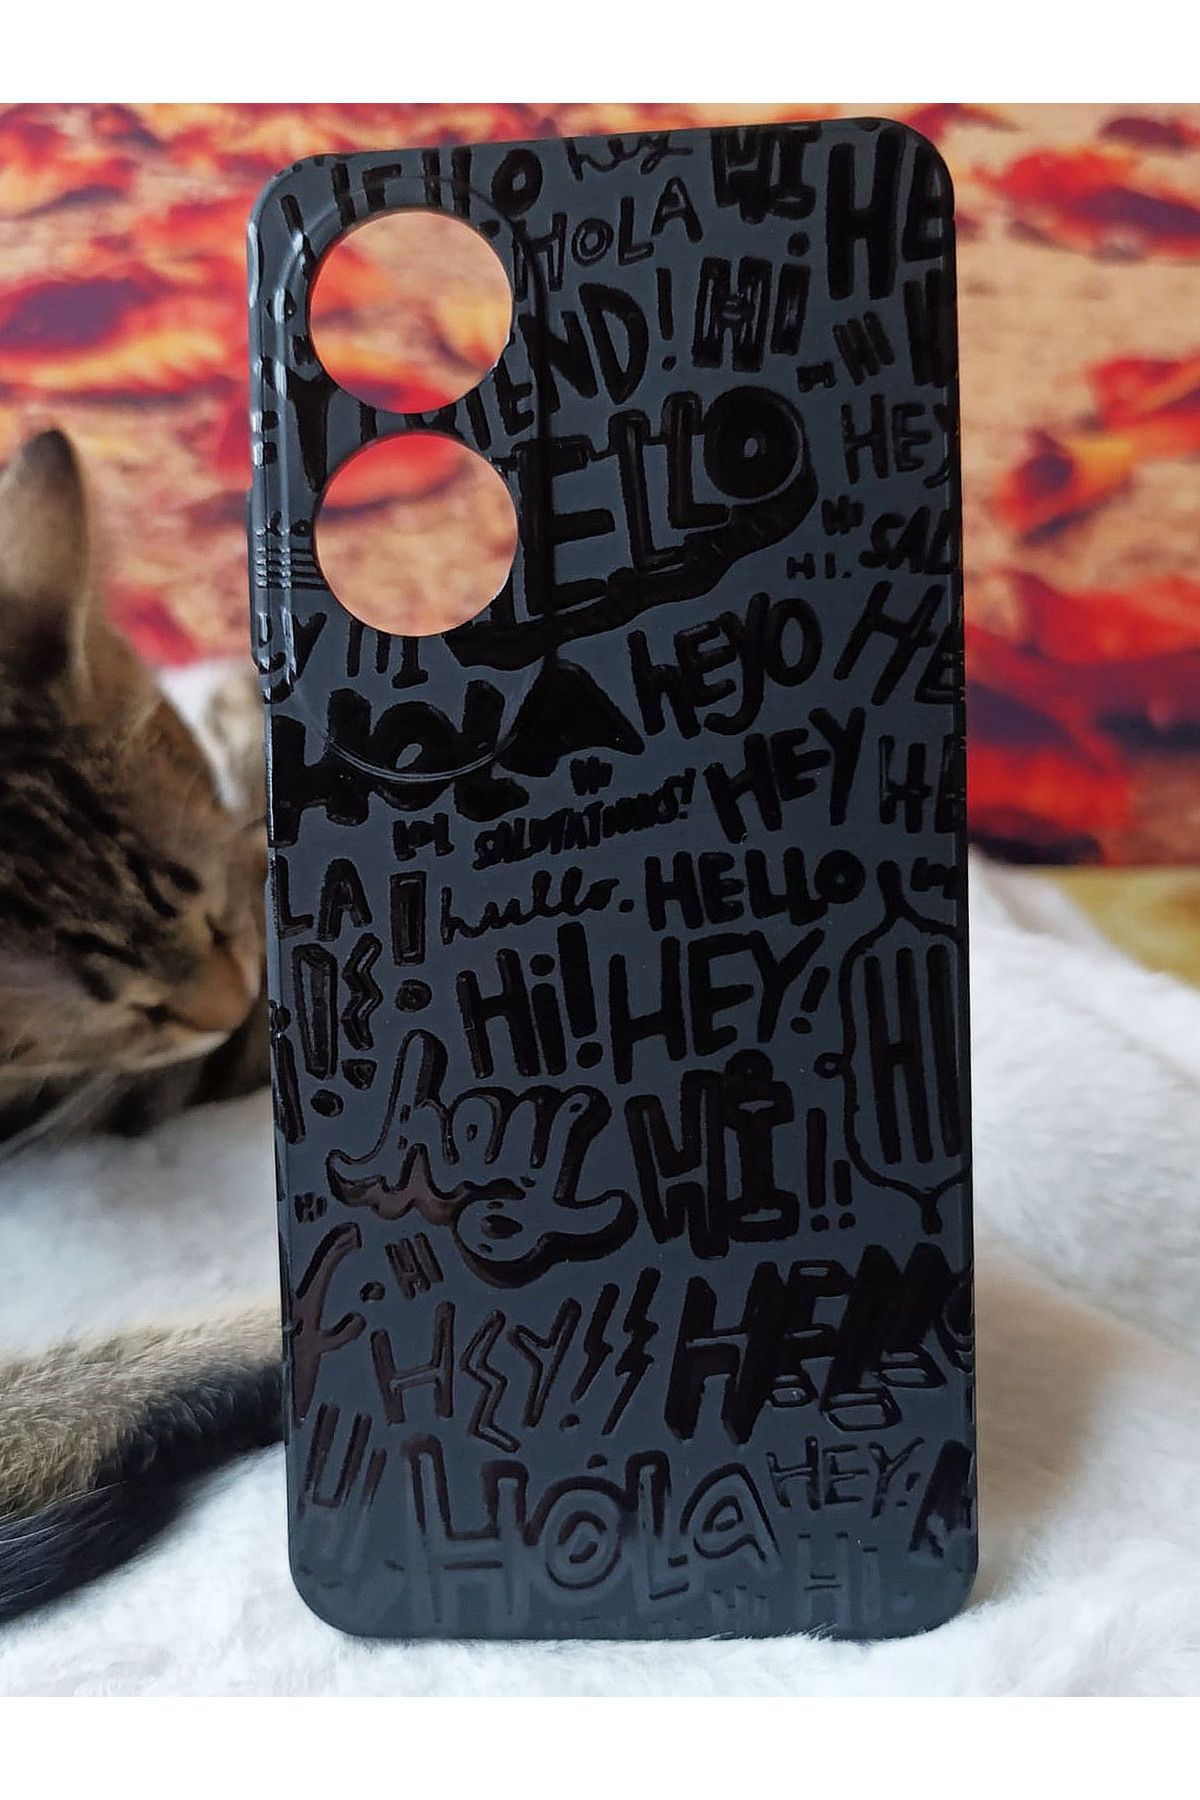 HELLO hey HI HE
HOLA
FRIEND! Hi
HI
HELLO HEY
HI. SAL
HI HEYO HE
HOLA HEY HE
SALUTATIONS!
LA hello. HELLO
Hi! HEY! HI
hey HI!!
HI
HEY!! HELLO
HOLA HEY.
HI.